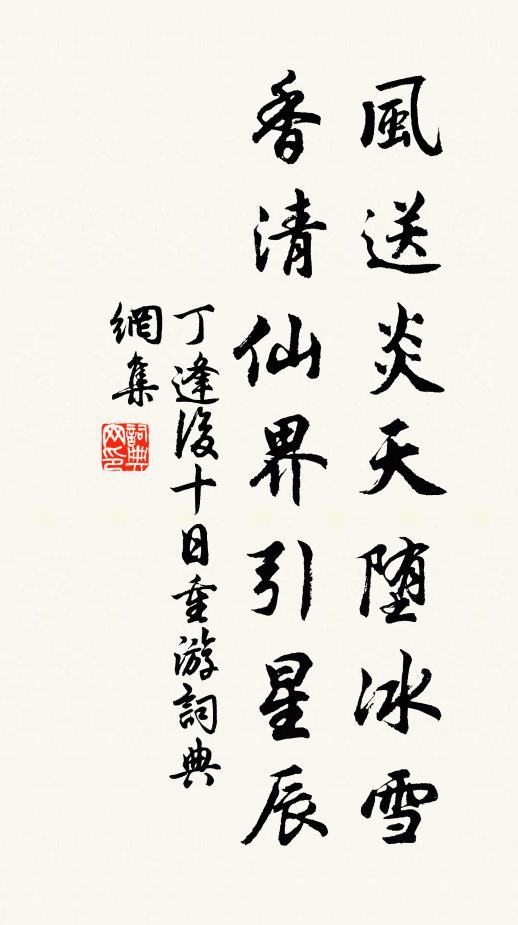 風送炎天堕冰雪
香清仙界引星辰
丁逢後十日重游詞典
網集
詞典
网印